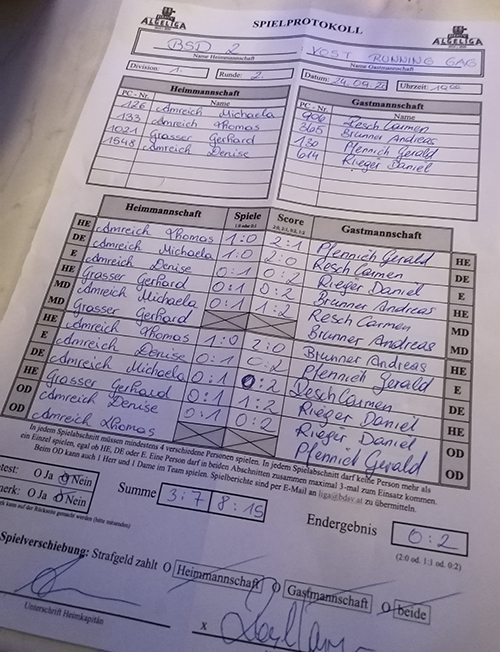 ALGELIGA SPIELPROTOKOLL ALGELIGA
BSD 2 : VOST RUNNING GAG
Name Heimmannschaft Name Gastmannschaft
Division: 1. Runde: 2. Datum: 24.09. Uhrzeit: 19
Heimmannschaft Gastmannschaft
PC - Nr. Name PC - Nr. Name
126 Amreich Michaela 906 Resch Carmen
133 Amreich Thomas 365 Brunner Andreas
1021 Grasser Gerhard 130 Pfennich Gerald
1548 Amreich Denise 614 Rieger Daniel
Heimmannschaft Spiele Score Gastmannschaft
1:0 oder 0:1 2:0, 2:1, 0:2, 1:2
HE Amreich Thomas 1:0 2:1 Pfennich Gerald HE
DE Amreich Michaela 1:0 2:0 Resch Carmen DE
E Amreich Denise 0:1 0:2 Rieger Daniel E
HE Grasser Gerhard 0:1 0:2 Brunner Andreas HE
MD Amreich Michaela 0:1 1:2 Resch Carmen MD
MD Grasser Gerhard Brunner Andreas MD
HE Amreich Thomas 1:0 2:0 Brunner Andreas HE
E Amreich Denise 0:1 0:2 Pfennich Gerald E
DE Amreich Michaela 0:1 0:2 Resch Carmen DE
HE Grasser Gerhard 0:1 1:2 Rieger Daniel HE
OD Amreich Denise 0:1 0:2 Rieger Daniel OD
OD Amreich Thomas Pfennich Gerald OD
In jedem Spielabschnitt müssen mindestens 4 verschiedene Personen spielen. In jedem Spielabschnitt darf keine Person mehr als
ein Einzel spielen, egal ob HE, DE oder E. Eine Person darf in beiden Abschnitten zusammen maximal 3-mal zum Einsatz kommen.
Beim OD kann auch 1 Herr und 1 Dame im Team spielen. Spielberichte sind per E-Mail an liga@bdsv.at zu übermitteln.
test: O Ja O Nein Summe 3:7 8:15 Endergebnis 0:2
merk: O Ja O Nein (2:0 od. 1:1 od. 0:2)
kann auf der Rückseite gemacht werden (bitte mitsenden)
Spielverschiebung: Strafgeld zahlt O Heimmannschaft O Gastmannschaft O beide
x
Unterschrift Heimkapitän